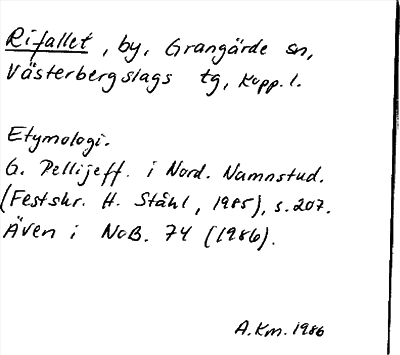 Rifallet, by, Grangärde sn,
Västerbergslags tg, Kopp. l.
Etymologi.
G. Pellijeff. i Nord. Namnstud.
(Festskr. H. Ståhl, 1985), s. 207.
Även i NoB. 74 (1986).
A.Km. 1986